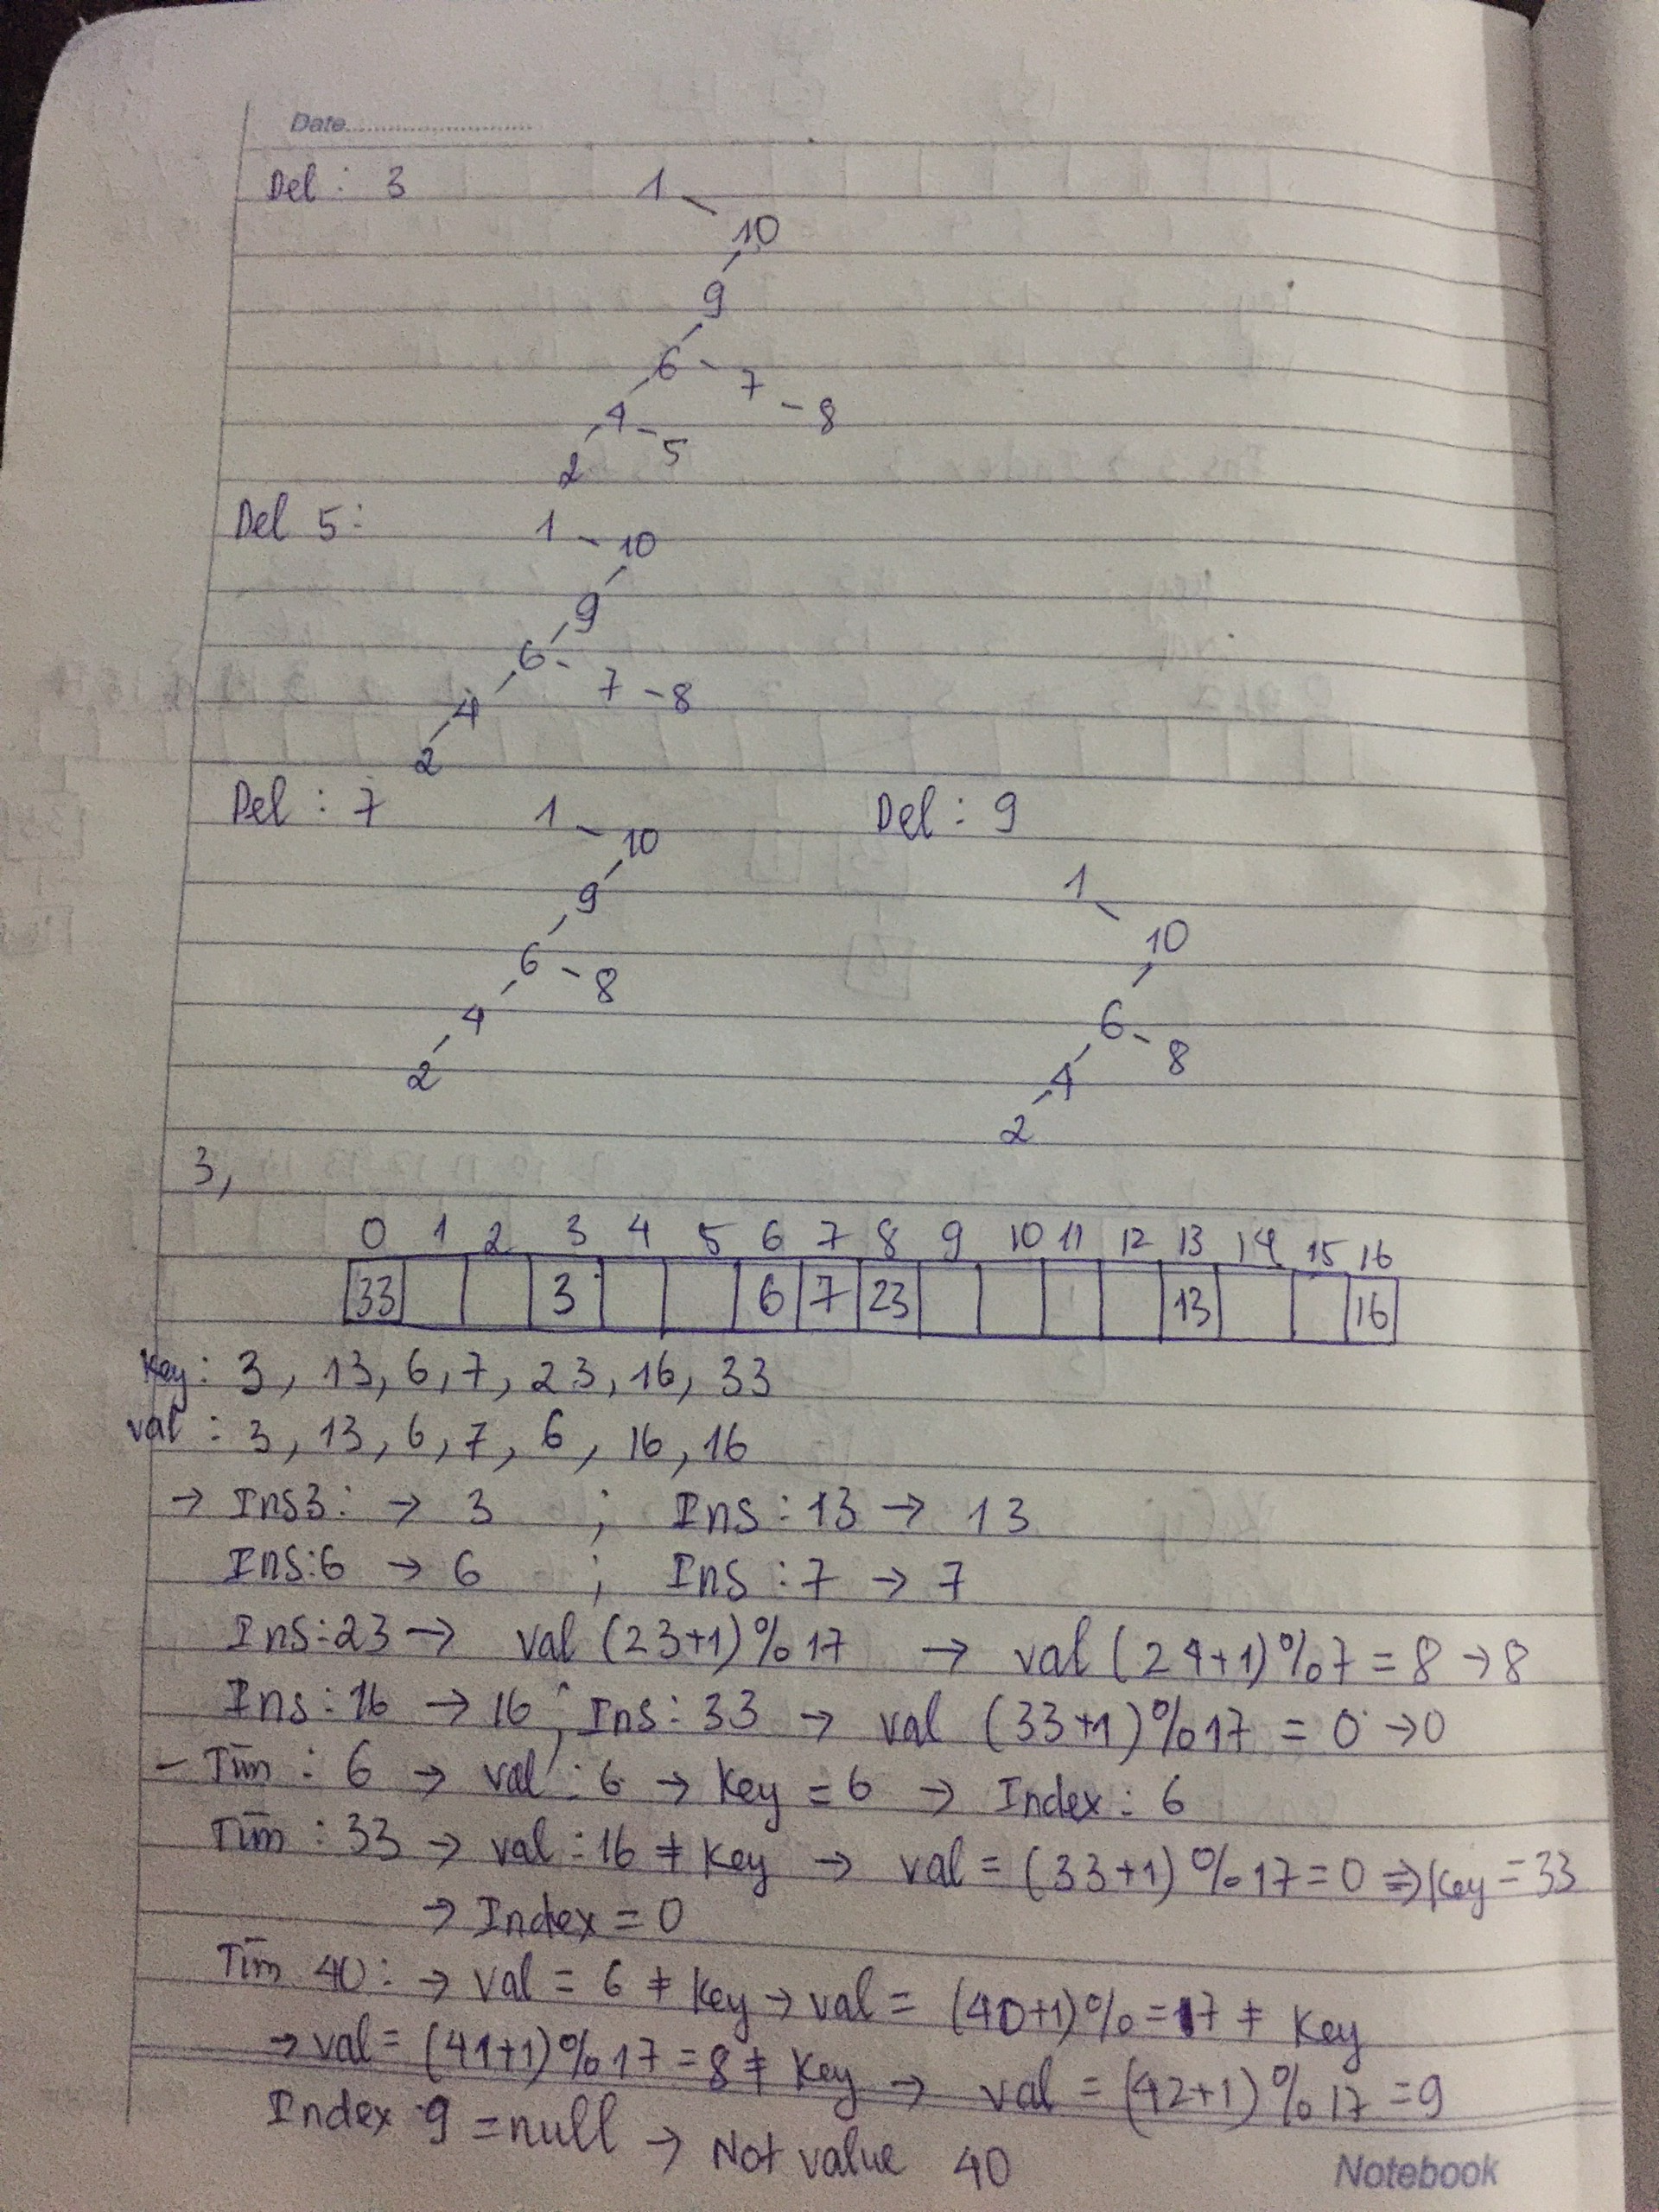 Date
Del : 3
1
10
9
6
7
8
4
5
2
Del 5 :
1
10
9
6
7
8
4
2
Del : 7
1
10
9
6
8
4
2
Del : 9
1
10
6
8
4
2
3,
0 1 2 3 4 5 6 7 8 9 10 11 12 13 14 15 16
33 3 6 7 23 13 16
Key : 3, 13, 6, 7, 23, 16, 33
val : 3, 13, 6, 7, 6, 16, 16
→ Ins3: → 3 ; Ins : 13 → 13
Ins:6 → 6 ; Ins : 7 → 7
Ins:23 → val (23+1)%17 → val (24+1)%7 = 8 → 8
Ins: 16 → 16 ; Ins: 33 → val (33+1)%17 = 0 → 0
- Tìm : 6 → val : 6 → Key = 6 → Index : 6
Tìm : 33 → val : 16 ≠ Key → val = (33+1)%17 = 0 => Key = 33
→ Index = 0
Tìm 40 : → val = 6 ≠ Key → val = (40+1)% = 17 ≠ Key
→ val = (41+1)%17 = 8 ≠ Key → val = (42+1)%17 = 9
Index 9 = null → Not value 40
Notebook